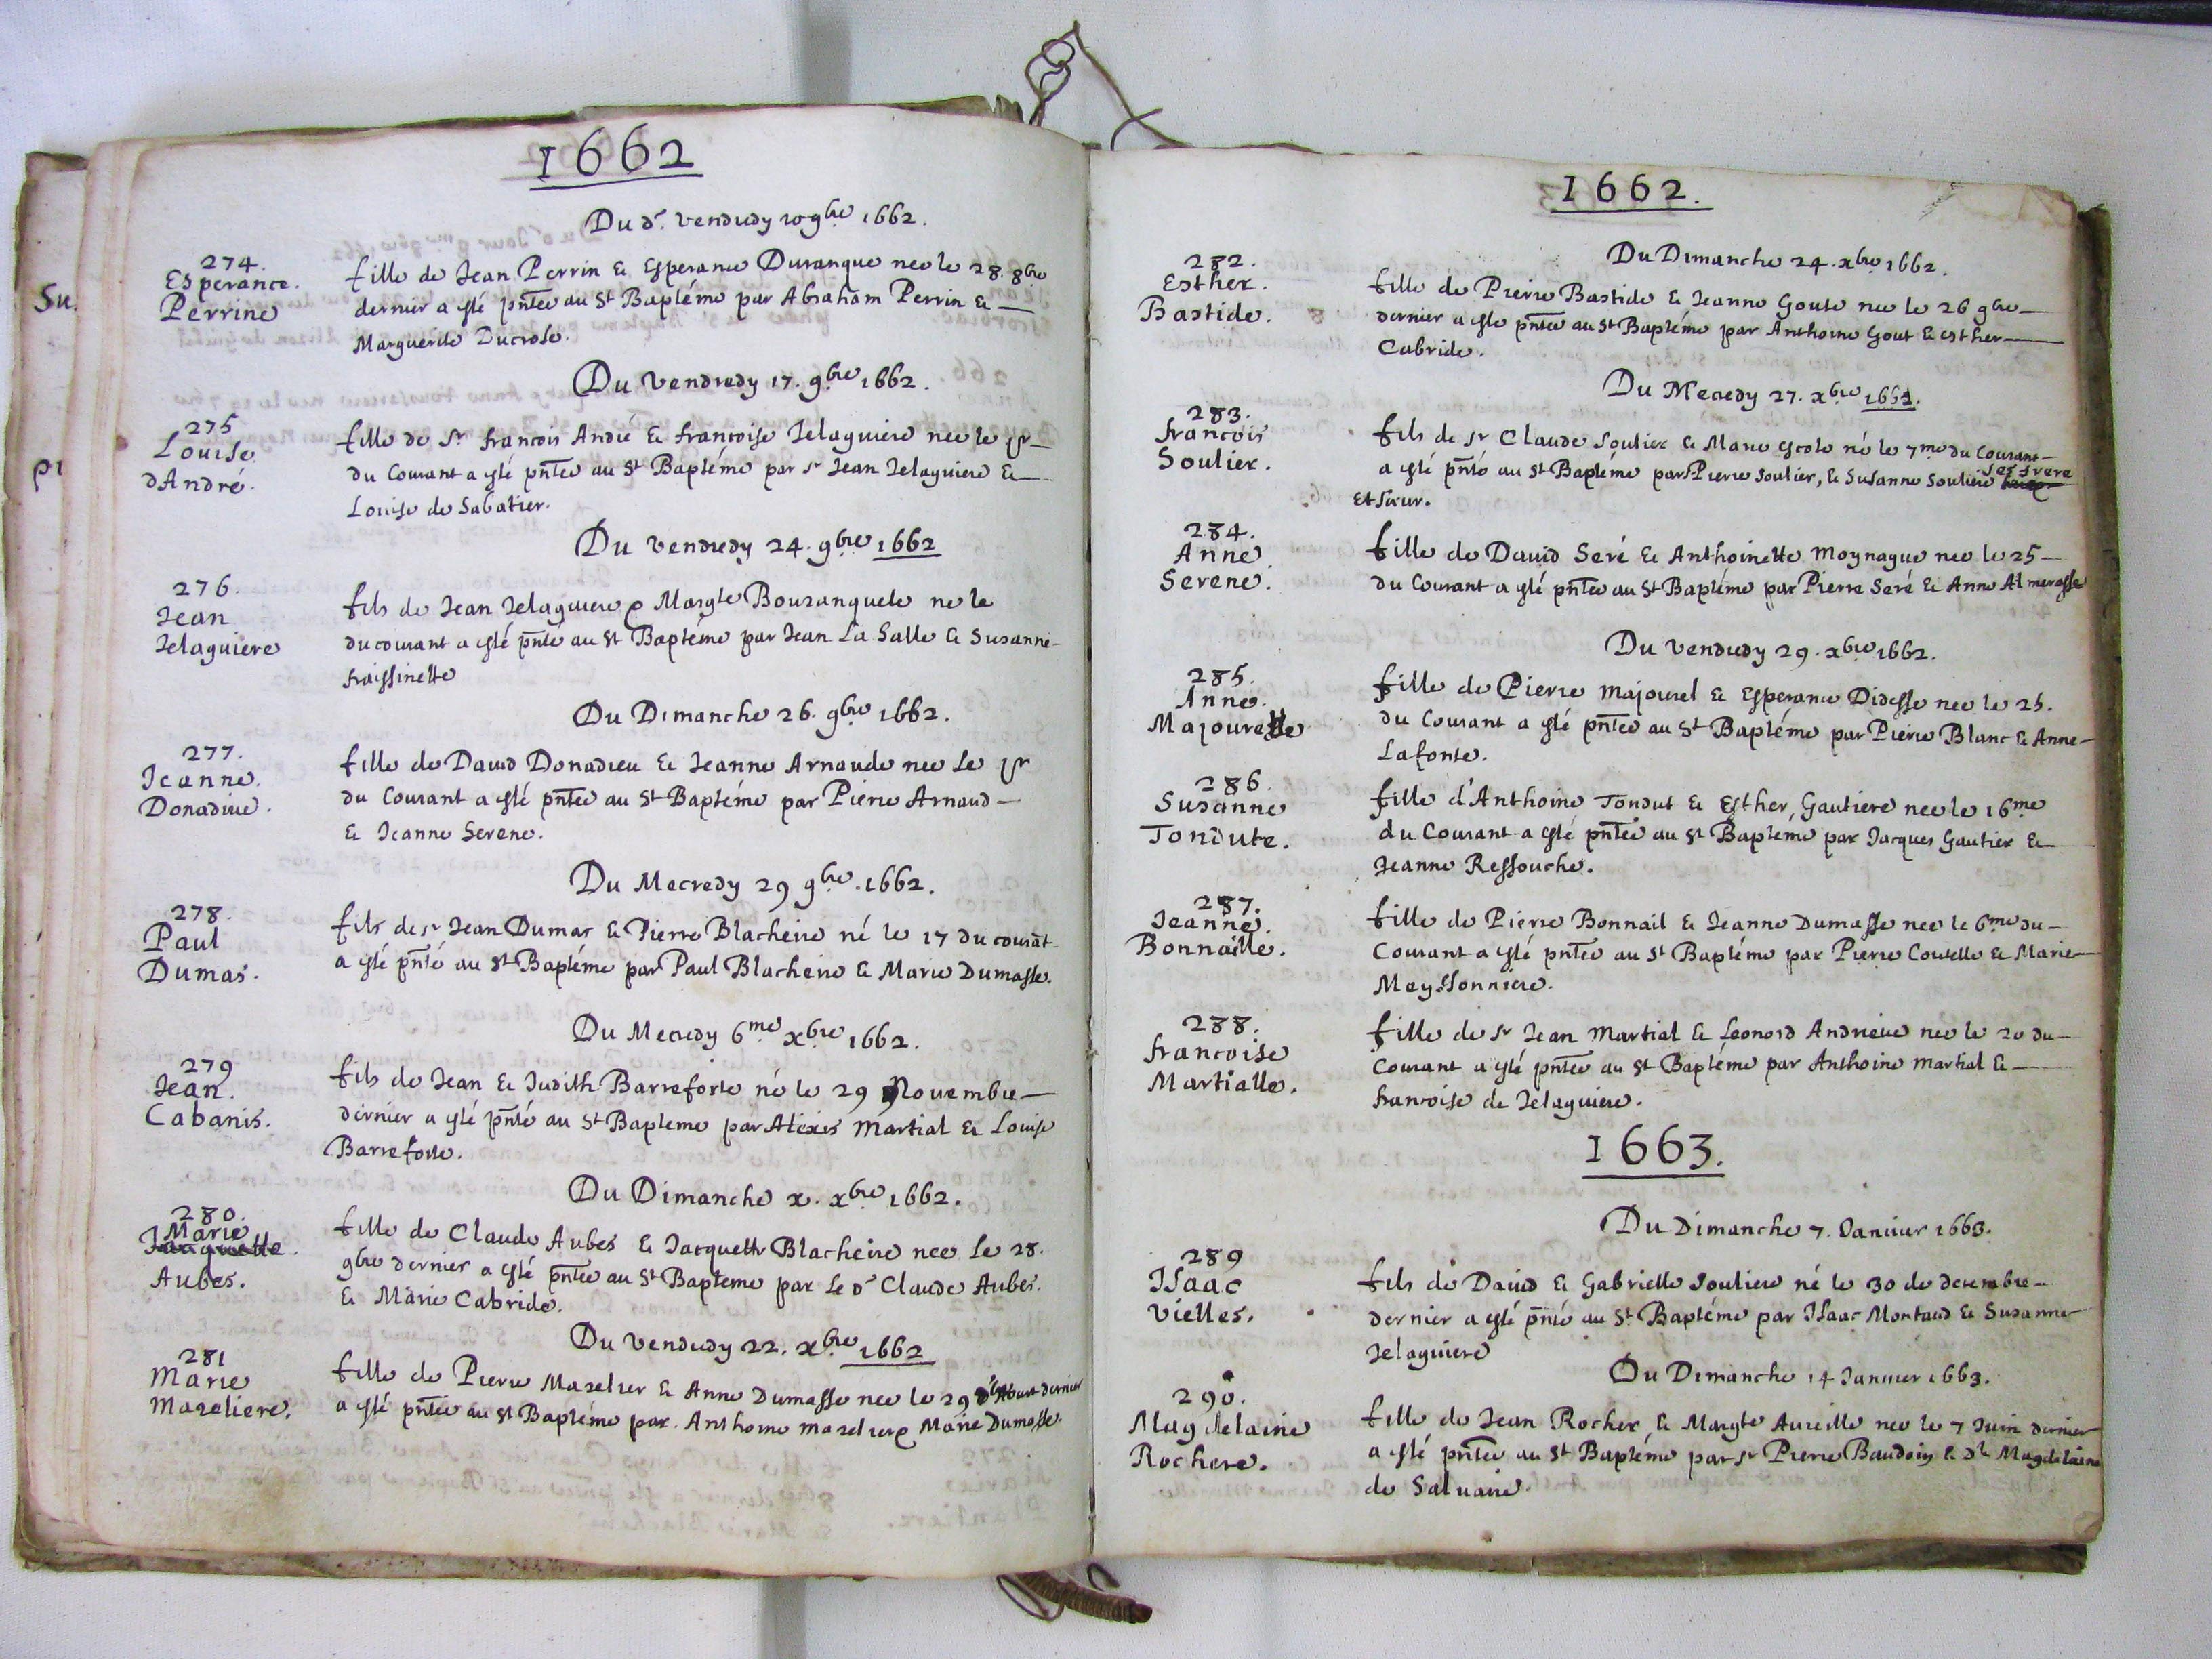 Su.
pr
1662
Du dt. vendredy 10 9bre 1662.
274.
Esperance.
Perrine
fille de Jean Perrin & Esperance Duranque nee le 28. 8bre
dernier a esté pñtee au St Baptéme par Abraham Perrin &
Marguerite Ducrose.
Du Vendredy 17. 9bre 1662.
275
Louise
dAndré.
fille de Sr francois André & francoise Jelaguiere nee le pr
du Courant a esté pñtee au St Baptéme par sr Jean Jelaguiere &
Louise de Sabatier.
Du vendredy 24. 9bre 1662
276.
Jean
Jelaguiere
fils de Jean Jelaguiere & Margte Bouranquele ne le
du courant a esté pñte au St Baptéme par Jean La Salle & Susanne
fraissinette
Du Dimanche 26. 9bre 1662.
277.
Jeanne.
Donadive.
fille de David Donadieu & Jeanne Arnaude nee le pr
du Courant a esté pñtee au St Baptéme par Pierre Arnaud
& Jeanne Serene.
Du Mecredy 29 9bre. 1662.
278.
Paul
Dumas.
fils de sr Jean Dumas & Pierre Blacheire né le 17 du courãt
a esté pñté au St Baptéme par Paul Blacheire & Marie Dumasse.
Du Mecredy 6me xbre 1662.
279
Jean.
Cabanis.
fils de Jean & Judith Barreforte né le 29 Novembre
dernier a esté pñté au St Bapteme par Alexis Martial & Louise
Barreforte.
Du Dimanche x. xbre 1662.
280.
Marie
Jacquette.
Aubes.
fille de Claude Aubes & Jacquette Blacheire nee le 28.
9bre dernier a esté pñtee au St Bapteme par Le dt Claude Aubes.
& Marie Cabride.
Du Vendredy 22. xbre 1662
281
Marie
Mazeliere.
fille de Pierre Mazelier & Anne Dumasse nee le 29 d'Aoust dernier
a esté pñtee au St Baptéme par. Anthoine mazelier & Marie Dumasse.
1662.
Du Dimanche 24. xbre 1662.
282.
Esther.
Bastide.
fille de Pierre Bastide & Jeanne Goute nee le 26 9bre
dernier a este pñtee au St Baptéme par Anthoine Gout & Esther
Cabride.
Du Mecredy 27. xbre 1662.
283.
francois
Soulier.
fils de sr Claude Soulier & Marie Escole né le 7me du Courant
ses frere
a esté pñté au St Baptéme par Pierre Soulier, & Susanne Souliere
et sœur.
284.
Anne
Serene.
fille de David Seré & Anthoinette Moynague nee le 25
du Courant a esté pñtee au St Baptéme par Pierre Seré & Anne Almerasse
Du Vendredy 29. xbre 1662.
285.
Anne.
Majourelle
fille de Pierre Majourel & Esperance Didesse nee le 25.
du Courant a esté pñtee au St Baptéme par Pierre Blanc & Anne
Lafonte.
286.
Susanne
Tondute.
fille d'Anthoine Tondut & Esther, Gautiere nee le 16me
du Courant a esté pñtee au St Bapteme par Jacques Gautier &
Jeanne Ressouche.
287.
Jeanne.
Bonnaille.
fille de Pierre Bonnail & Jeanne Dumasse nee le 6me du
Courant a esté pñtee au St Baptéme par Pierre Courelle & Marie
Meyssonniere.
288.
francoise
Martialle.
fille de sr Jean Martial & Leonord Andrieue nee le 20 du
Courant a esté pñtee au St Baptéme par Anthoine Martial &
francoise de Jelaguiere.
1663.
Du Dimanche 7. Janvier 1663.
289
Isaac
Vielles.
fils de David & Gabrielle Souliere né le 30 de decembre
dernier a esté pñté au St Baptéme par Isaac Montaud & Susanne
Jelaguiere
Du Dimanche 14 Janvier 1663.
290.
Magdelaine
Rochere.
fille de Jean Rocher & Margte Aureille nee le 7 Juin dernier
a esté pñtee au St Baptéme par sr Pierre Baudoin & Dle Magdelaine
de Salvaire.